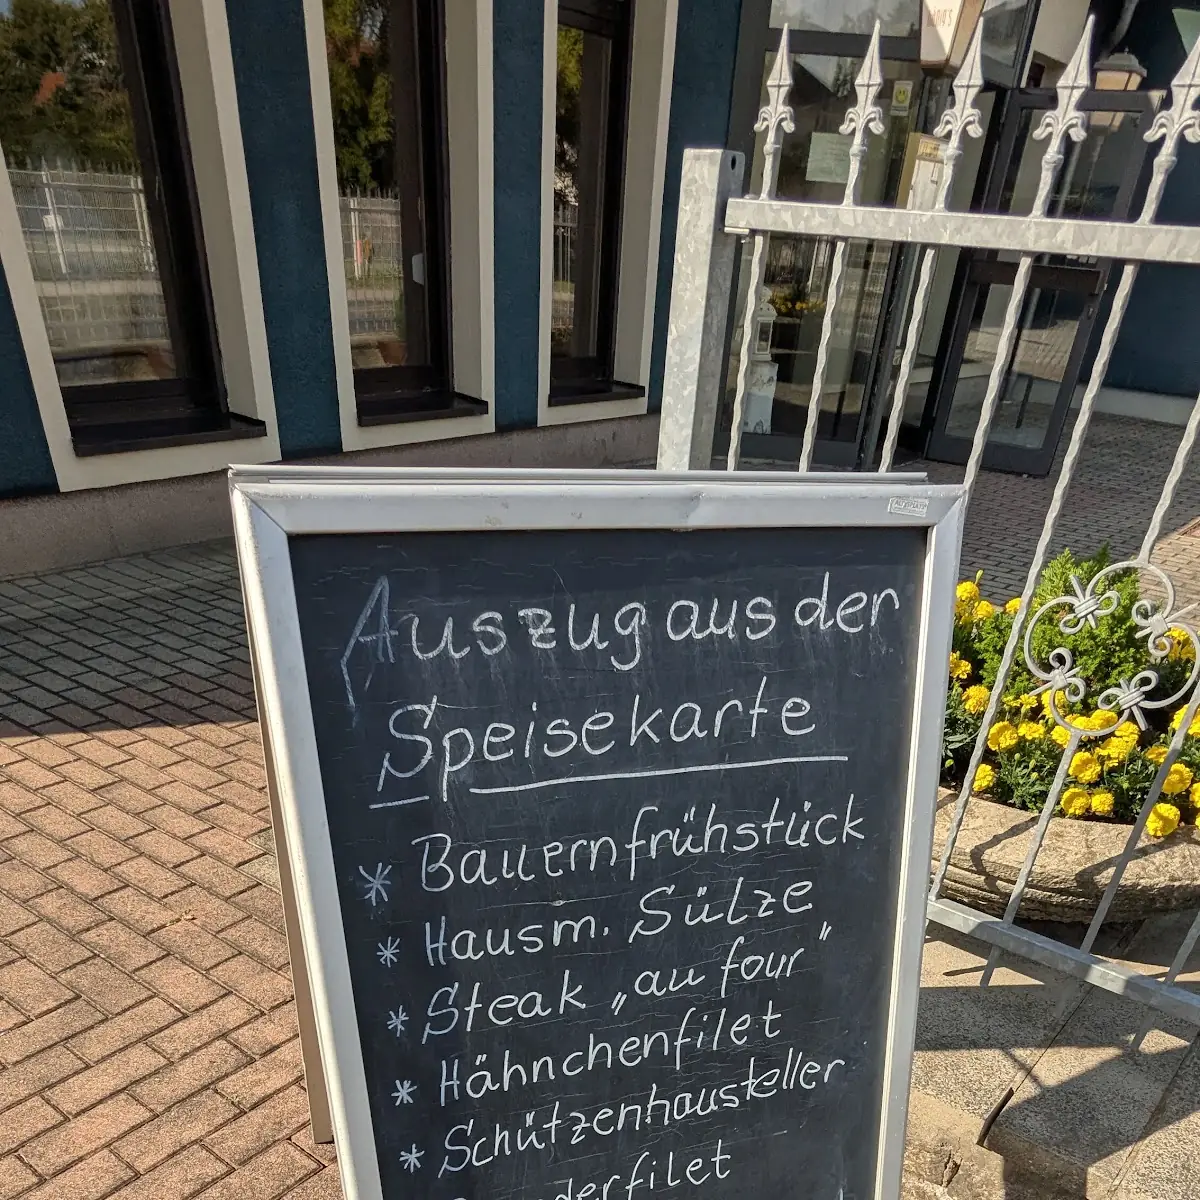 Auszug aus der
Speisekarte
* Bauernfrühstück
* Hausm. Sülze
* Steak „au four"
* Hähnchenfilet
* Schützenhausteller